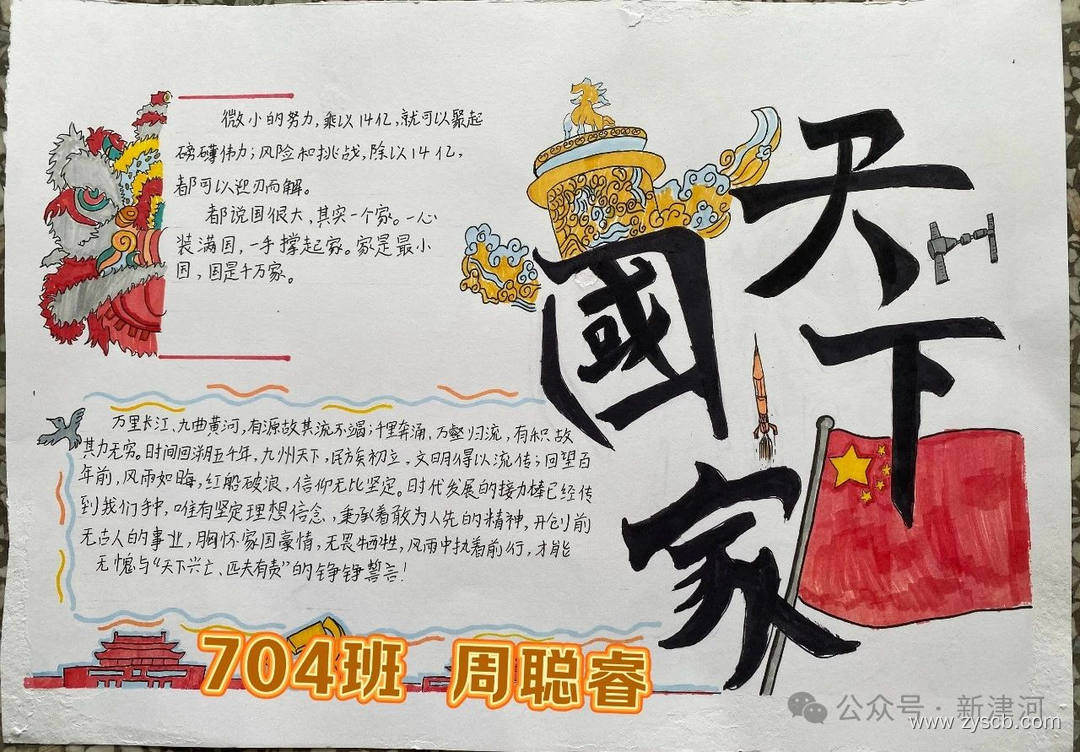 微小的努力,乘以14亿,就可以聚起
磅礴伟力;风险和挑战,除以14亿,
都可以迎刃而解。
都说国很大,其实一个家。一心
装满国,一手撑起家。家是最小
国,国是千万家。
天下
國家
万里长江、九曲黄河,有源故其流不竭;千里奔涌、万壑归流,有积故
其力无穷。时间回溯五千年,九州天下,民族初立,文明得以流传;回望百
年前,风雨如晦,红船破浪,信仰无比坚定。时代发展的接力棒已经传
到我们手中,唯有坚定理想信念,秉承着敢为人先的精神,开创前
无古人的事业,胸怀家国豪情,无畏牺牲,风雨中执着前行,才能
无愧与“天下兴亡、匹夫有责”的铮铮誓言!
704班 周聪睿
公众号·新津河
www.zyscb.com